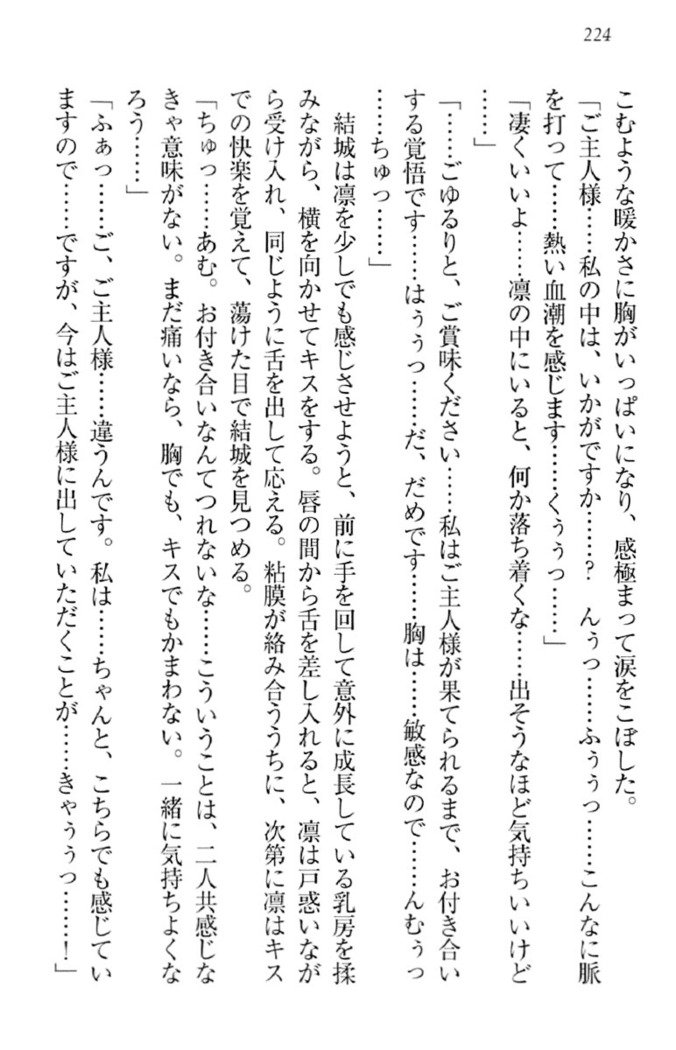 224
こむような暖かさに胸がいっぱいになり、感極まって涙をこぼした。
「ご主人様……私の中は、いかがですか……？　んぅっ……ふぅぅっ……こんなに脈
を打って……熱い血潮を感じます……くぅぅっ……」
「凄くいいよ……凛の中にいると、何か落ち着くな……出そうなほど気持ちいいけど
……」
「……ごゆるりと、ご賞味ください……私はご主人様が果てられるまで、お付き合い
する覚悟です……はぅぅっ……だ、だめです……胸は……敏感なので……んむぅっ
……ちゅっ……」
結城は凛を少しでも感じさせようと、前に手を回して意外に成長している乳房を揉
みながら、横を向かせてキスをする。唇の間から舌を差し入れると、凛は戸惑いなが
ら受け入れ、同じように舌を出して応える。粘膜が絡み合ううちに、次第に凛はキス
での快楽を覚えて、蕩けた目で結城を見つめる。
「ちゅっ……あむ。お付き合いなんてつれないな……こういうことは、二人共感じな
きゃ意味がない。まだ痛いなら、胸でも、キスでもかまわない。一緒に気持ちよくな
ろう……」
「ふぁっ……ご、ご主人様……違うんです。私は……ちゃんと、こちらでも感じてい
ますので……ですが、今はご主人様に出していただくことが……きゃぅぅっ……！」